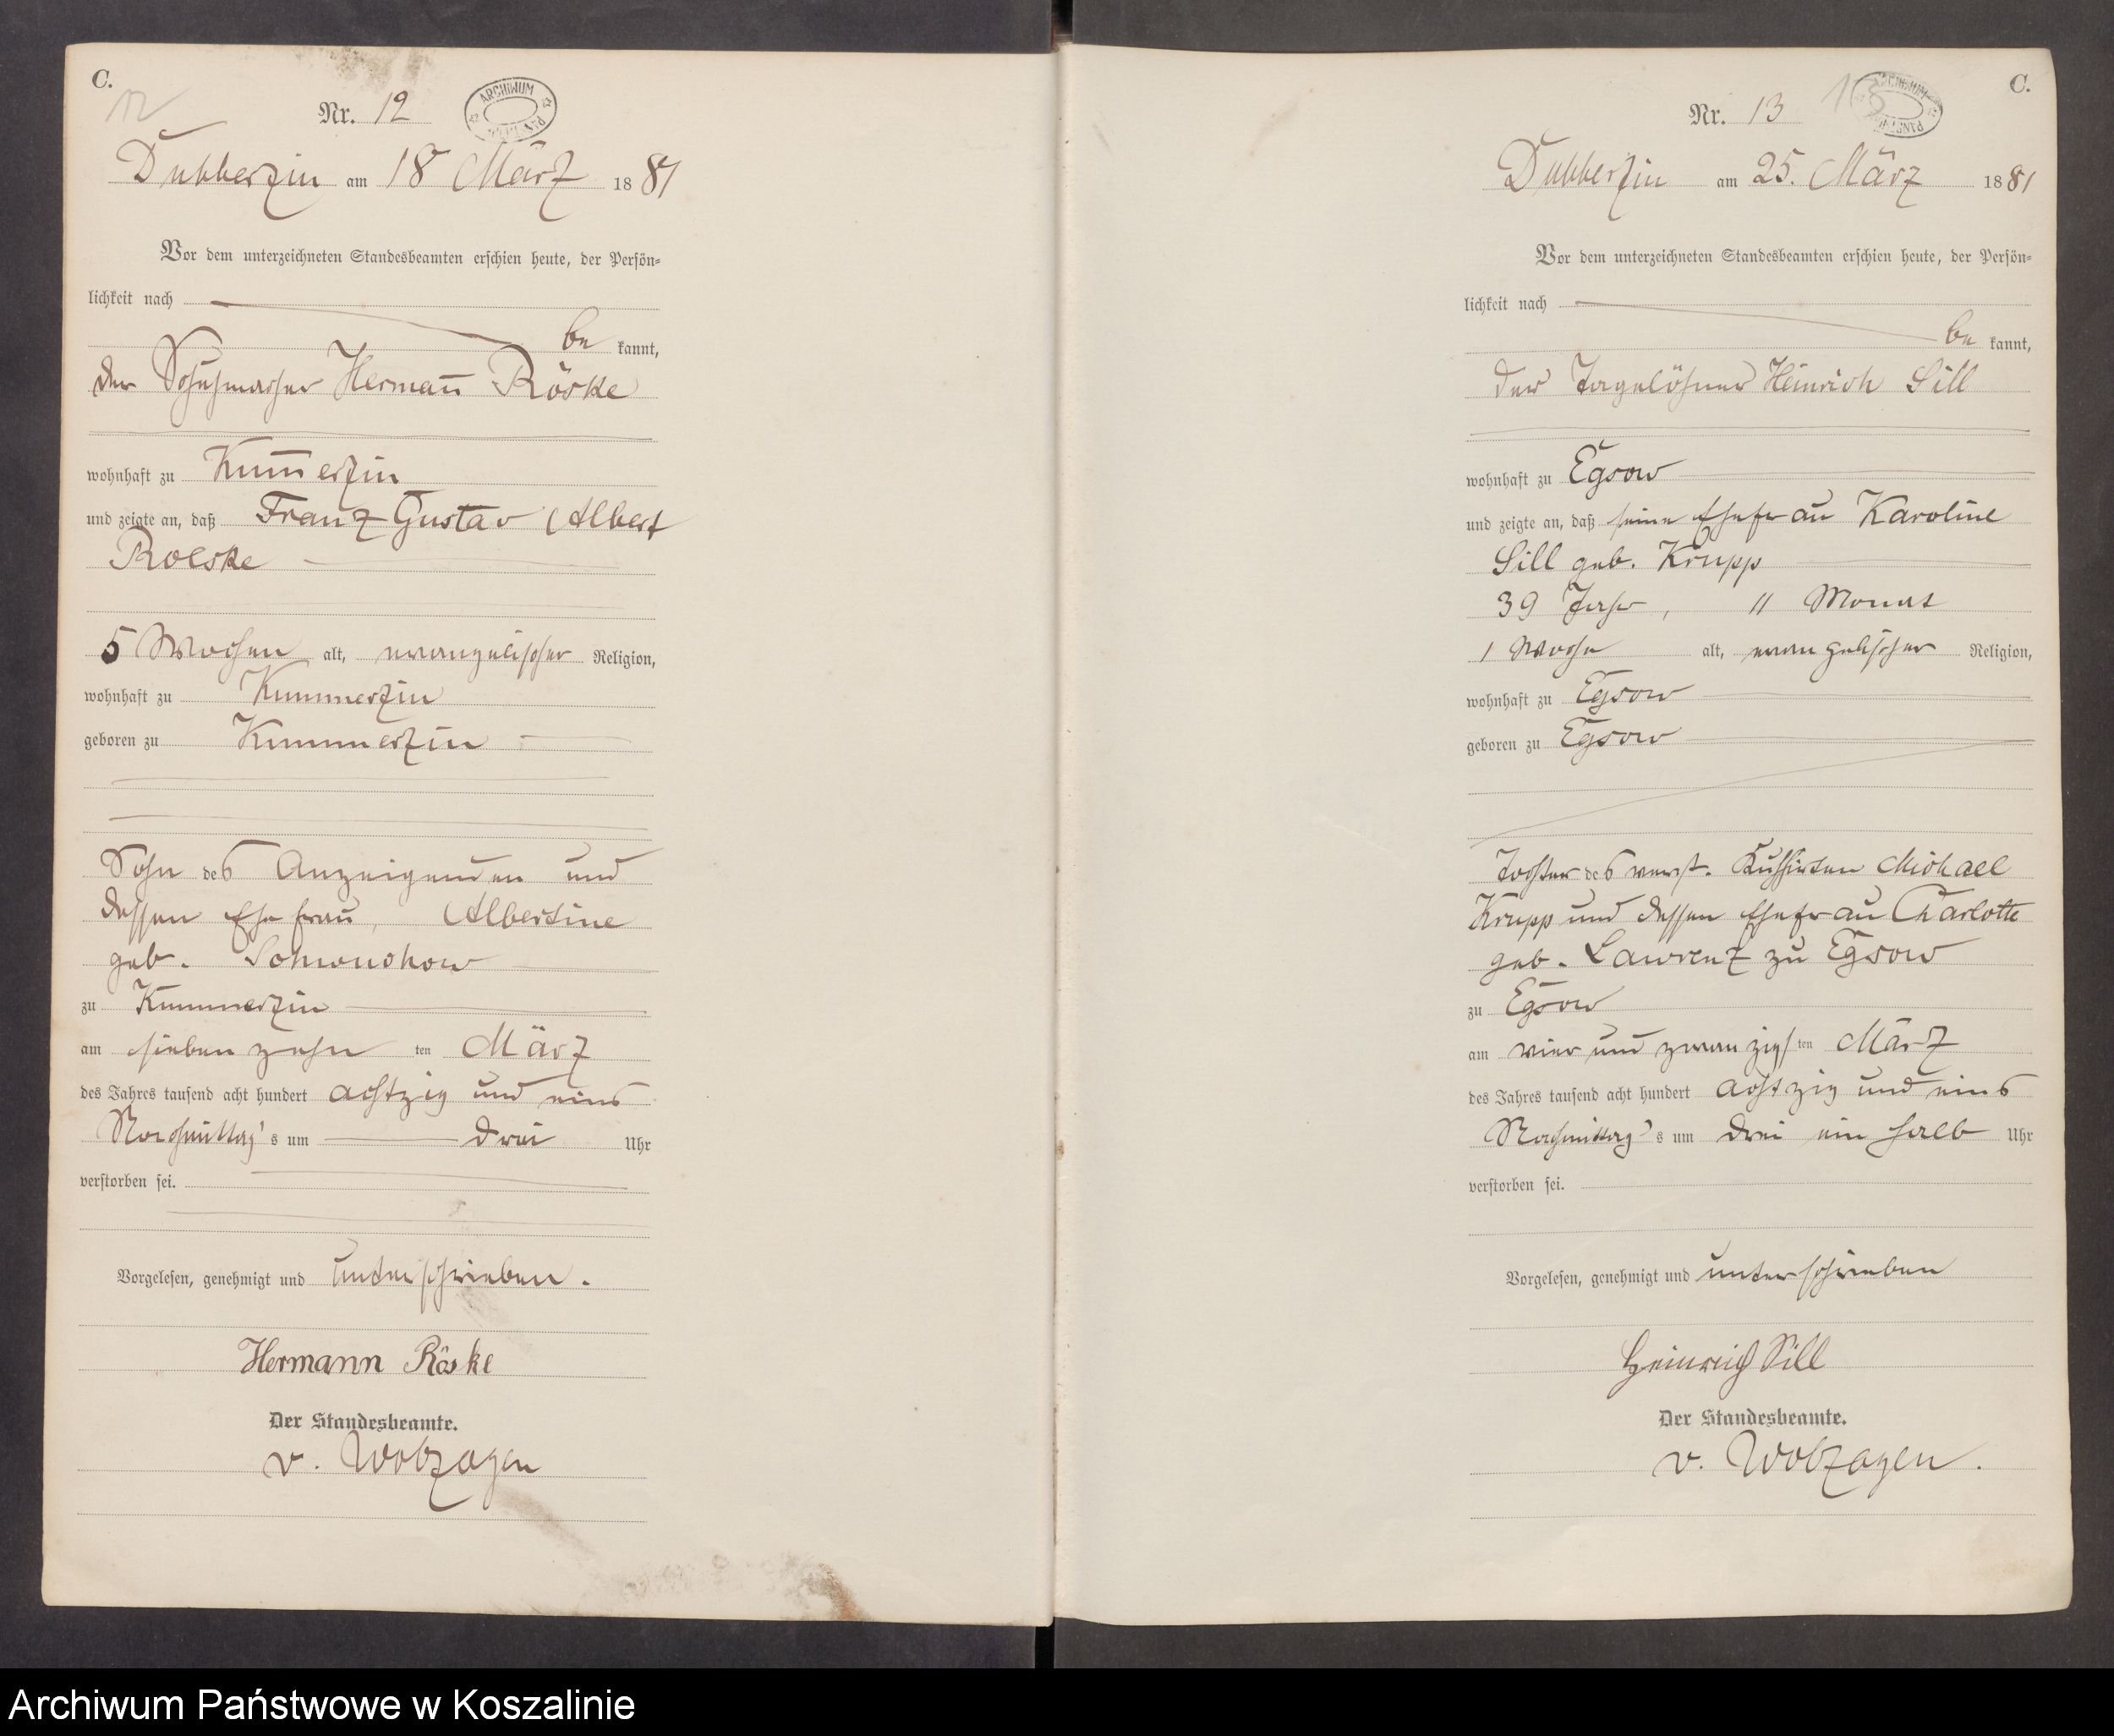 C.
12
Nr. 12
ARCHIWUM
Dubberzin am 18 März 1881
Vor dem unterzeichneten Standesbeamten erschien heute, der Persön=
lichkeit nach
be kannt,
der Schuhmacher Hermañ Röske
wohnhaft zu Kum̄erzin
und zeigte an, daß Franz Gustav Albert
Roeske
5 Wochen alt, evangelischer Religion,
wohnhaft zu Kummerzin
geboren zu Kummerzin
Sohn des Anzeigenden und
dessen Ehefrau, Albertine
geb.
zu Kummerzin
am siebenzehn ten März
des Jahres tausend acht hundert achtzig und eins
Nachmittag's um drei Uhr
verstorben sei.
Vorgelesen, genehmigt und unterschrieben.
Hermann Röske
Der Standesbeamte.
v. Wobzagen
C.
13
Nr. 13
ARCHIWUM
Dubberzin am 25. März 1881
Vor dem unterzeichneten Standesbeamten erschien heute, der Persön=
lichkeit nach
be kannt,
der Tagelöhner Heinrich Sill
wohnhaft zu Egsow
und zeigte an, daß seine Ehefrau Karoline
Sill geb. Krupp
39 Jahr, 11 Monat
1 Woche alt, evangelischer Religion,
wohnhaft zu Egsow
geboren zu Egsow
Tochter des verst. Kuhhirten Michael
Krupp und dessen Ehefrau Charlotte
geb. Lawrenz zu Egsow
zu Egsow
am vier und zwanzigsten März
des Jahres tausend acht hundert achtzig und eins
Nachmittag's um drei ein halb Uhr
verstorben sei.
Vorgelesen, genehmigt und unterschrieben
Heinrich Sill
Der Standesbeamte.
v. Wobzagen.
Archiwum Państwowe w Koszalinie